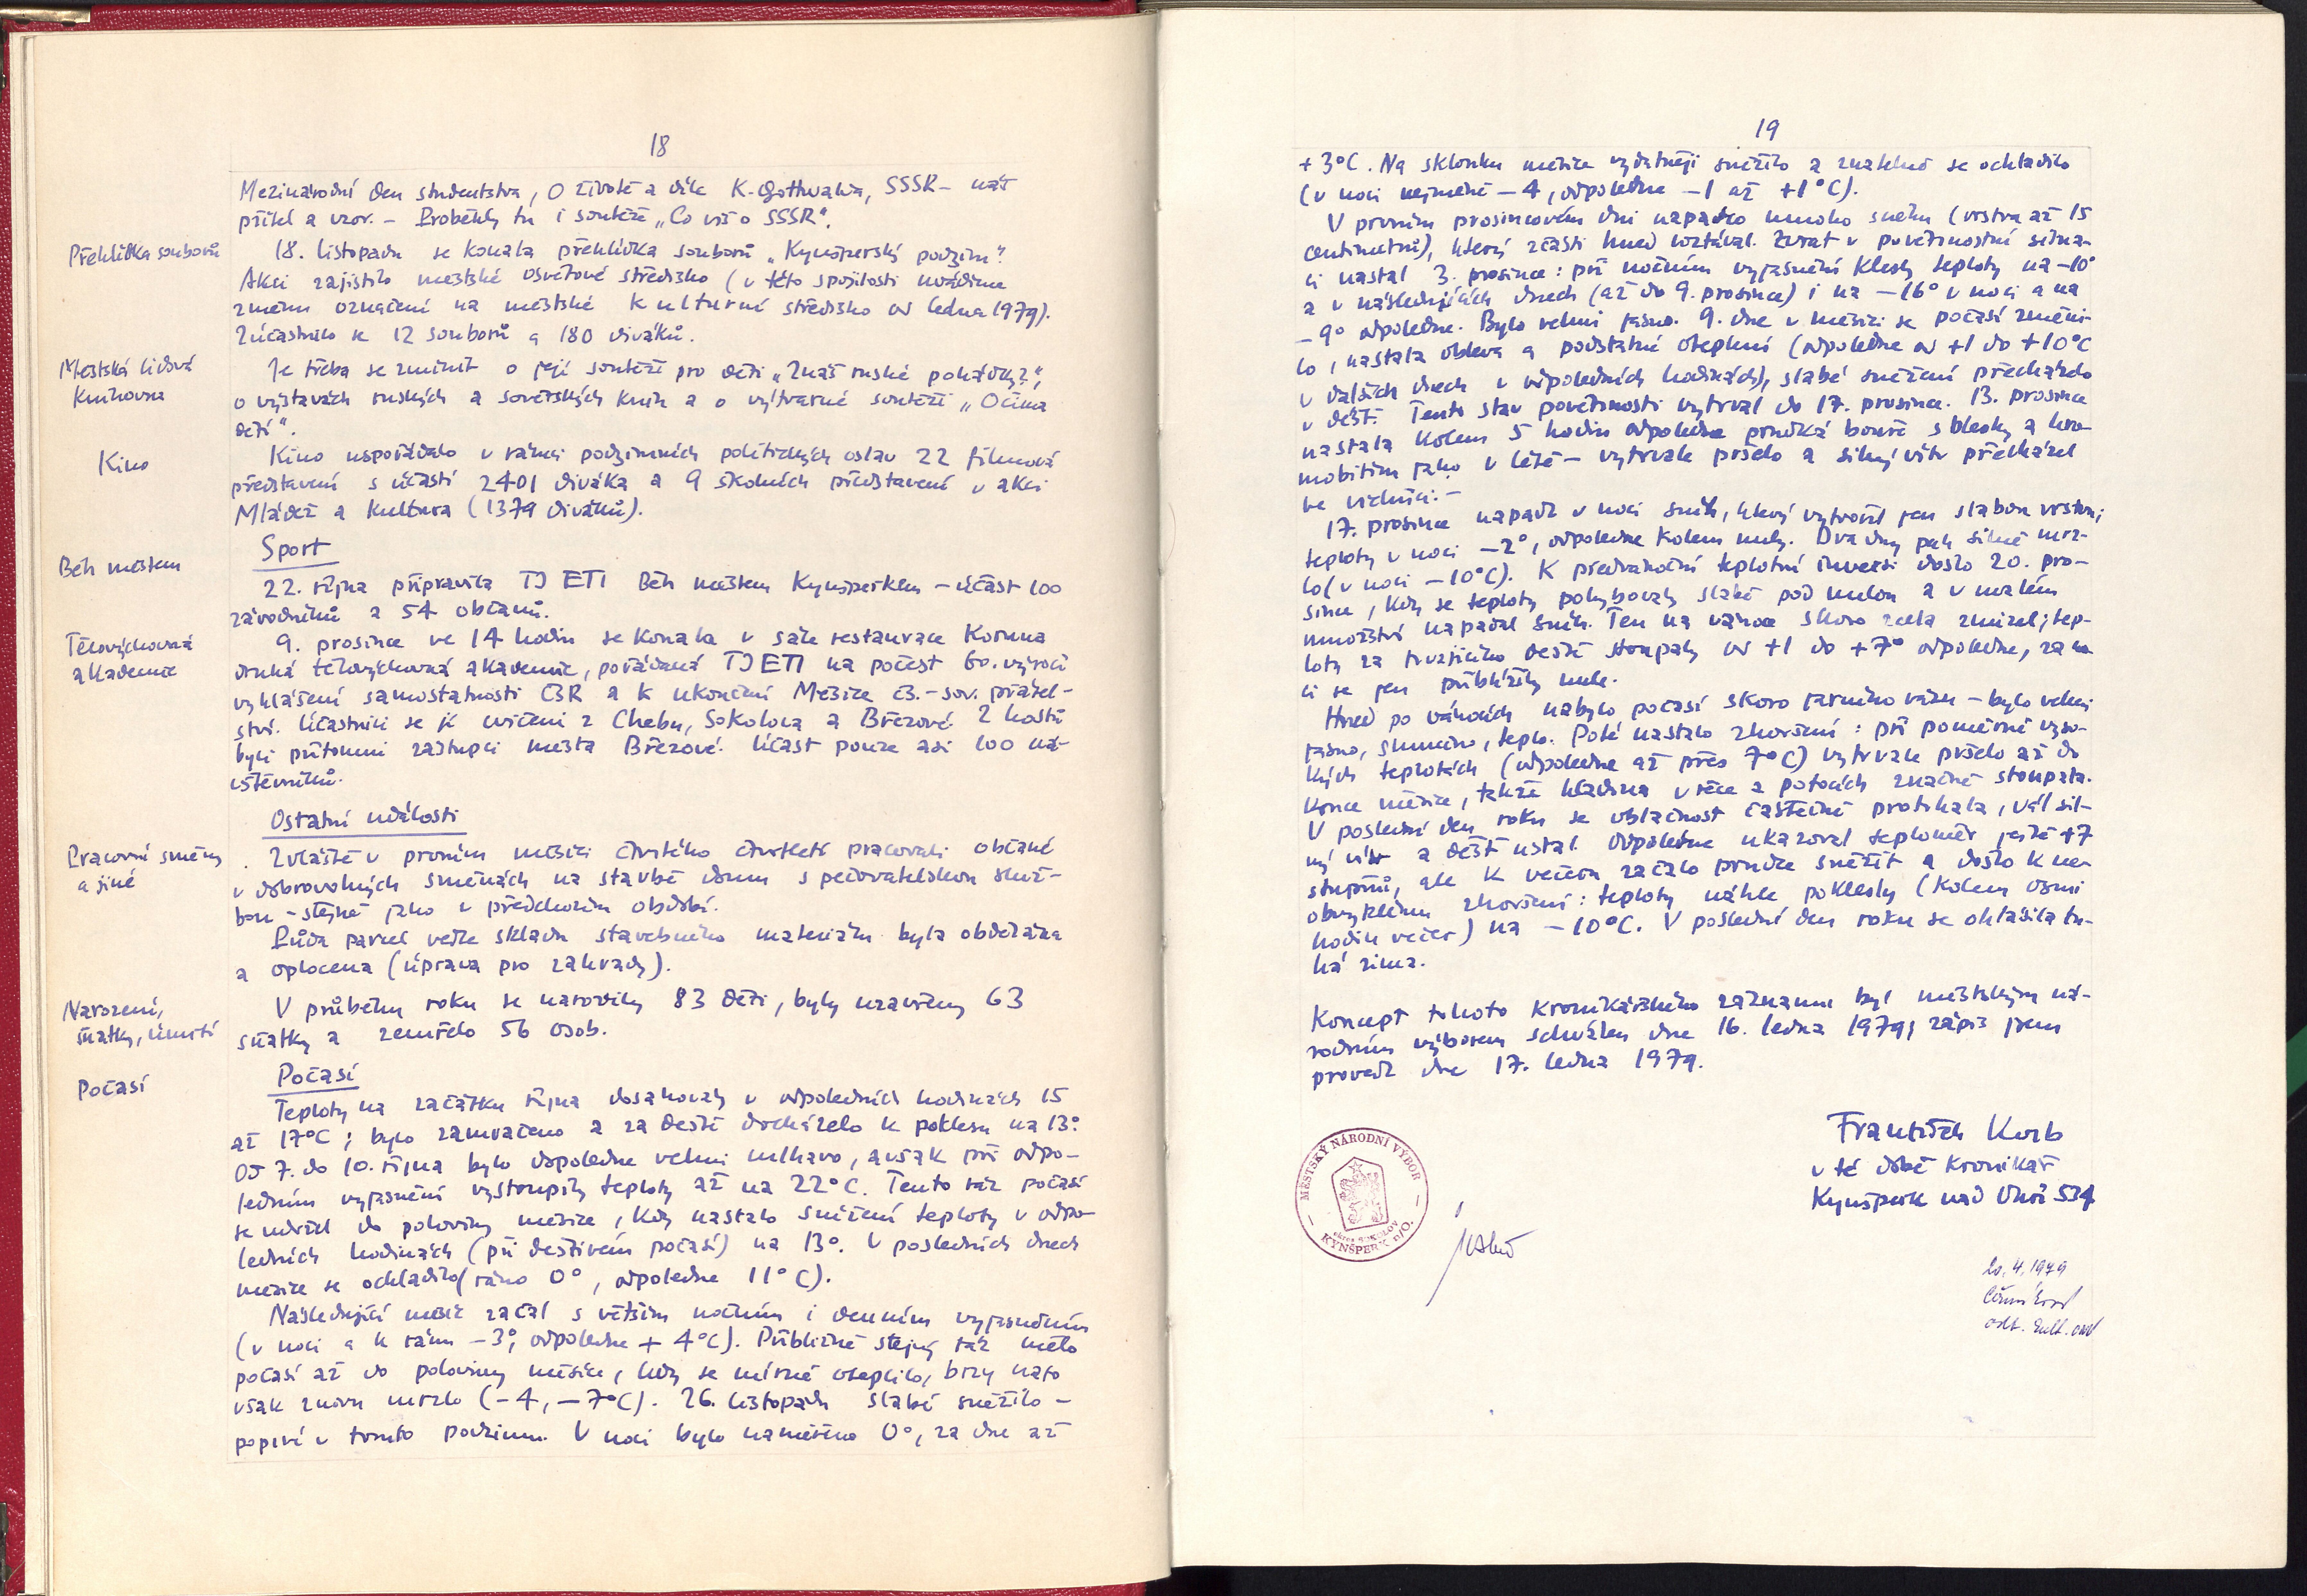 18
Mezinárodní den studentstva, O životě a díle K. Gottwalda, SSSR – náš
přítel a vzor. – Proběhly tu i soutěže „Co víš o SSSR“.
Přehlídka souborů
18. listopadu se konala přehlídka souborů „Kynšperský podzim“.
Akci zajistilo městské osvětové středisko (v této spojitosti uvádíme
změnu označení na městské kulturní středisko od ledna 1979).
Zúčastnilo se 12 souborů a 180 diváků.
Městská lidová
knihovna
Je třeba se zmínit o její soutěži pro děti „Znáš ruské pohádky?“,
o výstavách ruských a sovětských knih a o výtvarné soutěži „Očima
dětí“.
Kino
Kino uspořádalo v rámci podzimních politických oslav 22 filmová
představení s účastí 2401 diváka a 9 školních představení v akci
Mládež a kultura (1379 diváků).
Sport
Běh městem
22. října připravila TJ ETI Běh městem Kynšperkem – účast 100
závodníků a 54 občanů.
Tělovýchovná
akademie
9. prosince ve 14 hodin se konala v sále restaurace Koruna
druhá tělovýchovná akademie, pořádaná TJ ETI na počest 60. výročí
vyhlášení samostatnosti ČSR a k ukončení Měsíce čs.-sov. přátel-
ství. Účastnili se jí cvičenci z Chebu, Sokolova a Březové. Z hostů
byli přítomni zástupci města Březové. Účast pouze asi 100 ná-
vštěvníků.
Ostatní události
Pracovní směny
a jiné
Zvláště v prvním měsíci čtvrtého čtvrtletí pracovali občané
v dobrovolných směnách na stavbě domu s pečovatelskou služ-
bou – stejně jako v předchozím období.
Půda parcel vedle skladu stavebního materiálu byla obdělána
a oplocena (úprava pro zahrady).
Narození,
sňatky, úmrtí
V průběhu roku se narodily 83 děti, byly uzavřeny 63
sňatky a zemřelo 56 osob.
Počasí
Počasí
Teploty na začátku října dosahovaly v odpoledních hodinách 15
až 17°C; bylo zamračeno a za deště docházelo k poklesu na 13°.
Od 7. do 10. října bylo dopoledne velmi mlhavo, avšak při odpo-
ledním vyjasnění vystoupily teploty až na 22°C. Tento ráz počasí
se udržel do poloviny měsíce, kdy nastalo snížení teploty v odpo-
ledních hodinách (při deštivém počasí) na 13°. V posledních dnech
měsíce se ochladilo (ráno 0°, odpoledne 11°C).
Následující měsíc začal s větším nočním i denním vyjasněním
(v noci a k ránu –3°, odpoledne + 4°C). Přibližně stejný ráz mělo
počasí až do poloviny měsíce, kdy se mírně oteplilo, brzy nato
však znovu mrzlo (–4, –7°C). 26. listopadu slabě sněžilo –
poprvé v tomto podzimu. V noci bylo naměřeno 0°, za dne až
19
+3°C. Na sklonku měsíce vydatněji sněžilo a znatelně se ochladilo
(v noci nejméně –4, odpoledne –1 až +1°C).
V prvním prosincovém dni napadlo mnoho sněhu (vrstva až 15
centimetrů), který zčásti hned roztával. Zvrat v povětrnostní situa-
ci nastal 3. prosince: při nočním vyjasnění klesly teploty na –10°
a v následujících dnech (až do 9. prosince) i na –16° v noci a na
–9° odpoledne. Bylo velmi jasno. 9. dne v měsíci se počasí změni-
lo, nastala obleva a podstatné oteplení (odpoledne od +1 do +10°C
v dalších dnech v odpoledních hodinách), slabé sněžení přecházelo
v déšť. Tento stav povětrnosti vytrval do 17. prosince. 13. prosince
nastala kolem 5 hodin odpoledne prudká bouře s blesky a hro-
mobitím jako v létě – vytrvale pršelo a silný vítr přecházel
ve vichřici. –
17. prosince napadl v noci sníh, který vytvořil jen slabou vrstvu;
teploty v noci –2°, odpoledne kolem nuly. Dva dny pak silně mrz-
lo (v noci –10°C). K předvánoční teplotní inverzi došlo 20. pro-
since, kdy se teploty pohybovaly slabě pod nulou a v malém
množství napadal sníh. Ten na vánoce skoro zcela zmizel; tep-
loty za trvajícího deště stoupaly od +1 do +7° odpoledne, za no-
ci se jen přiblížily nule.
Hned po vánocích nabylo počasí skoro jarního rázu – bylo velmi
jasno, slunečno, teplo. Poté nastalo zhoršení: při poměrně vyso-
kých teplotách (odpoledne až přes 7°C) vytrvale pršelo až do
konce měsíce, takže hladina v řece a potocích značně stoupala.
V poslední den roku se oblačnost částečně protrhala, vál sil-
ný vítr a déšť ustal. Odpoledne ukazoval teploměr ještě +7
stupňů, ale k večeru začalo prudce sněžit a došlo k ne-
obvyklému zhoršení: teploty náhle poklesly (kolem osmi
hodin večer) na –10°C. V poslední den roku se ohlásila tu-
há zima.
Koncept tohoto kronikářského záznamu byl městským ná-
rodním výborem schválen dne 16. ledna 1979; zápis jsem
provedl dne 17. ledna 1979.
František Korb
v té době kronikář
Kynšperk nad Ohří 534
MĚSTSKÝ NÁRODNÍ VÝBOR
okres SOKOLOV
KYNŠPERK n/O.
20. 4. 1979
odb. kult. ONV